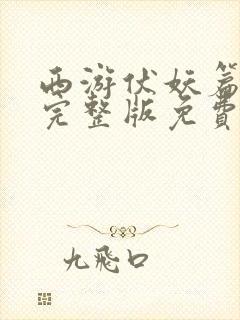 西游伏妖篇
完整版免费
九飛口